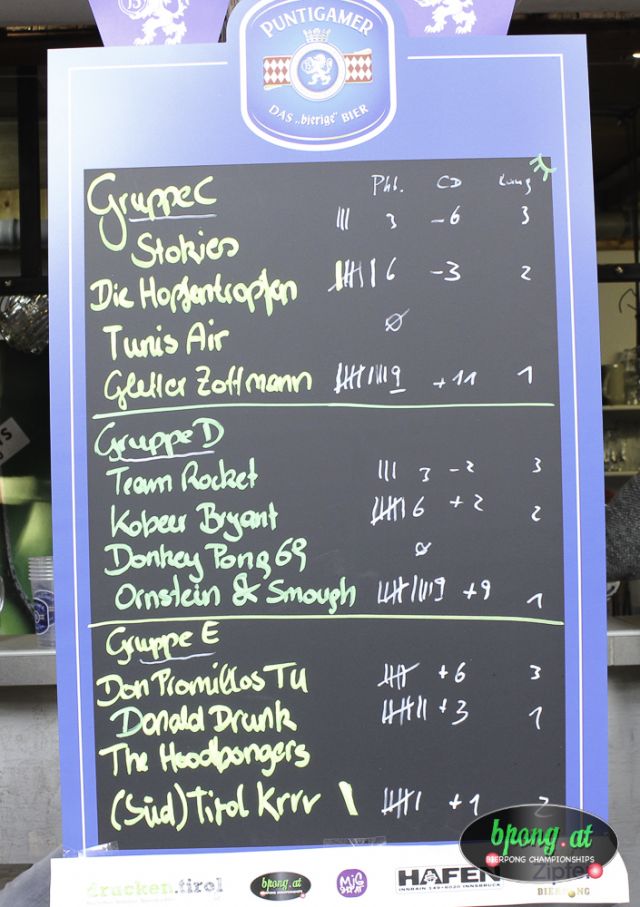 PUNTIGAMER
DAS "bierige" BIER
Pkt. CD Rang
Gruppe C ||| 3 -6 3
Stokies
Die Hopfentropfen 6 -3 2
Tunis Air Ø
Gletler Zottmann 9 +11 1
Gruppe D
Team Rocket ||| 3 -2 3
Kobeer Bryant 6 +2 2
Donkey Pong 69 Ø
Ornstein & Smough 9 +9 1
Gruppe E
Don Promillos TU +6 3
Donald Drunk +3 1
The Hoodpongers
(Süd)Tirol Krrr +1 2
bpong.at
BIERPONG CHAMPIONSHIPS
Zipfer
drucken.tirol
bpong.at
MiG
HAFEN
INNRAIN 149•6020 INNSBRUCK
BIERPONG